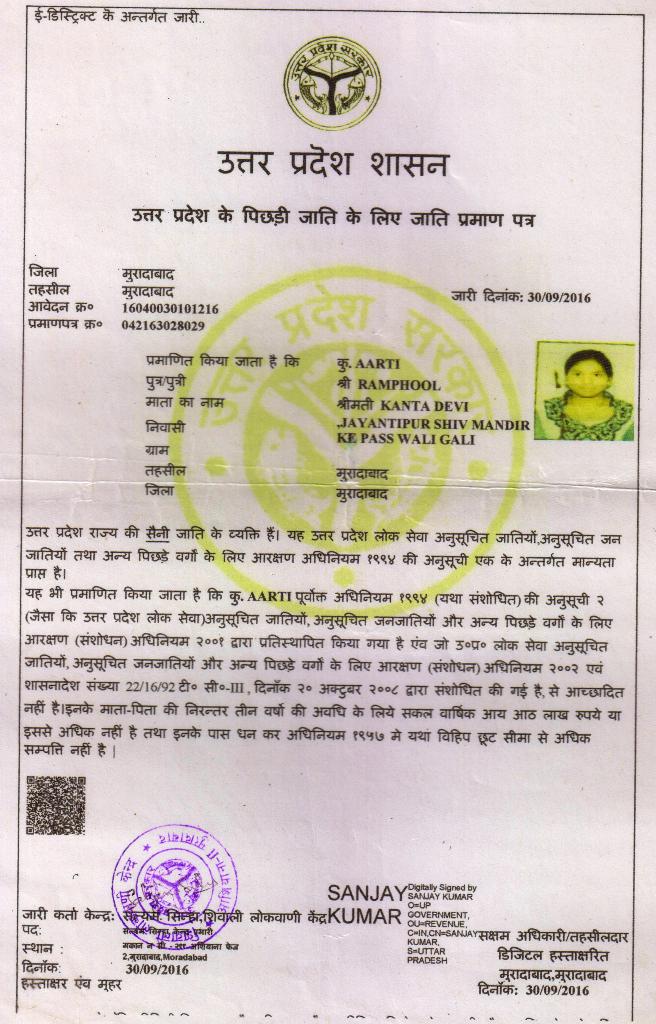 ई-डिस्ट्रिक्ट के अन्तर्गत जारी..
उत्तर प्रदेश सरकार
उत्तर प्रदेश शासन
उत्तर प्रदेश के पिछड़ी जाति के लिए जाति प्रमाण पत्र
जिला मुरादाबाद
तहसील मुरादाबाद
आवेदन क्र० 16040030101216
जारी दिनांक: 30/09/2016
प्रमाणपत्र क्र० 042163028029
प्रमाणित किया जाता है कि कु. AARTI
पुत्र/पुत्री श्री RAMPHOOL
माता का नाम श्रीमती KANTA DEVI
निवासी ,JAYANTIPUR SHIV MANDIR
KE PASS WALI GALI
ग्राम
तहसील मुरादाबाद
जिला मुरादाबाद
उत्तर प्रदेश राज्य की सैनी जाति के व्यक्ति हैं। यह उत्तर प्रदेश लोक सेवा अनुसूचित जातियों,अनुसूचित जन
जातियों तथा अन्य पिछड़े वर्गो के लिए आरक्षण अधिनियम १९९४ की अनुसूची एक के अन्तर्गत मान्यता
प्राप्त है।
यह भी प्रमाणित किया जाता है कि कु. AARTI पूर्वोक्त अधिनियम १९९४ (यथा संशोधित) की अनुसूची २
(जैसा कि उत्तर प्रदेश लोक सेवा)अनुसूचित जातियों,अनुसूचित जनजातियों और अन्य पिछड़े वर्गो के लिए
आरक्षण (संशोधन) अधिनियम २००१ द्वारा प्रतिस्थापित किया गया है एंव जो उ०प्र० लोक सेवा अनुसूचित
जातियों, अनुसूचित जनजातियों और अन्य पिछड़े वर्गो के लिए आरक्षण (संशोधन) अधिनियम २००२ एवं
शासनादेश संख्या 22/16/92 टी० सी०-III , दिनाँक २० अक्टुबर २००८ द्वारा संशोधित की गई है, से आच्छादित
नहीं है।इनके माता-पिता की निरन्तर तीन वर्षो की अवधि के लिये सकल वार्षिक आय आठ लाख रुपये या
इससे अधिक नहीं है तथा इनके पास धन कर अधिनियम १९५७ मे यथा विहिप छूट सीमा से अधिक
सम्पत्ति नहीं है |
SANJAY
KUMAR
Digitally Signed by
SANJAY KUMAR
O=UP
GOVERNMENT,
OU=REVENUE,
C=IN,CN=SANJAY
KUMAR,
S=UTTAR
PRADESH
जारी कर्ता केन्द्र: सत्यम सिन्हा,शिवाली लोकवाणी केंद्र
पद:
स्थान : मकान न
2,मुरादाबाद,Moradabad
दिनाँक: 30/09/2016
हस्ताक्षर एंव मुहर
सक्षम अधिकारी/तहसीलदार
डिजिटल हस्ताक्षरित
मुरादाबाद,मुरादाबाद
दिनाँक: 30/09/2016